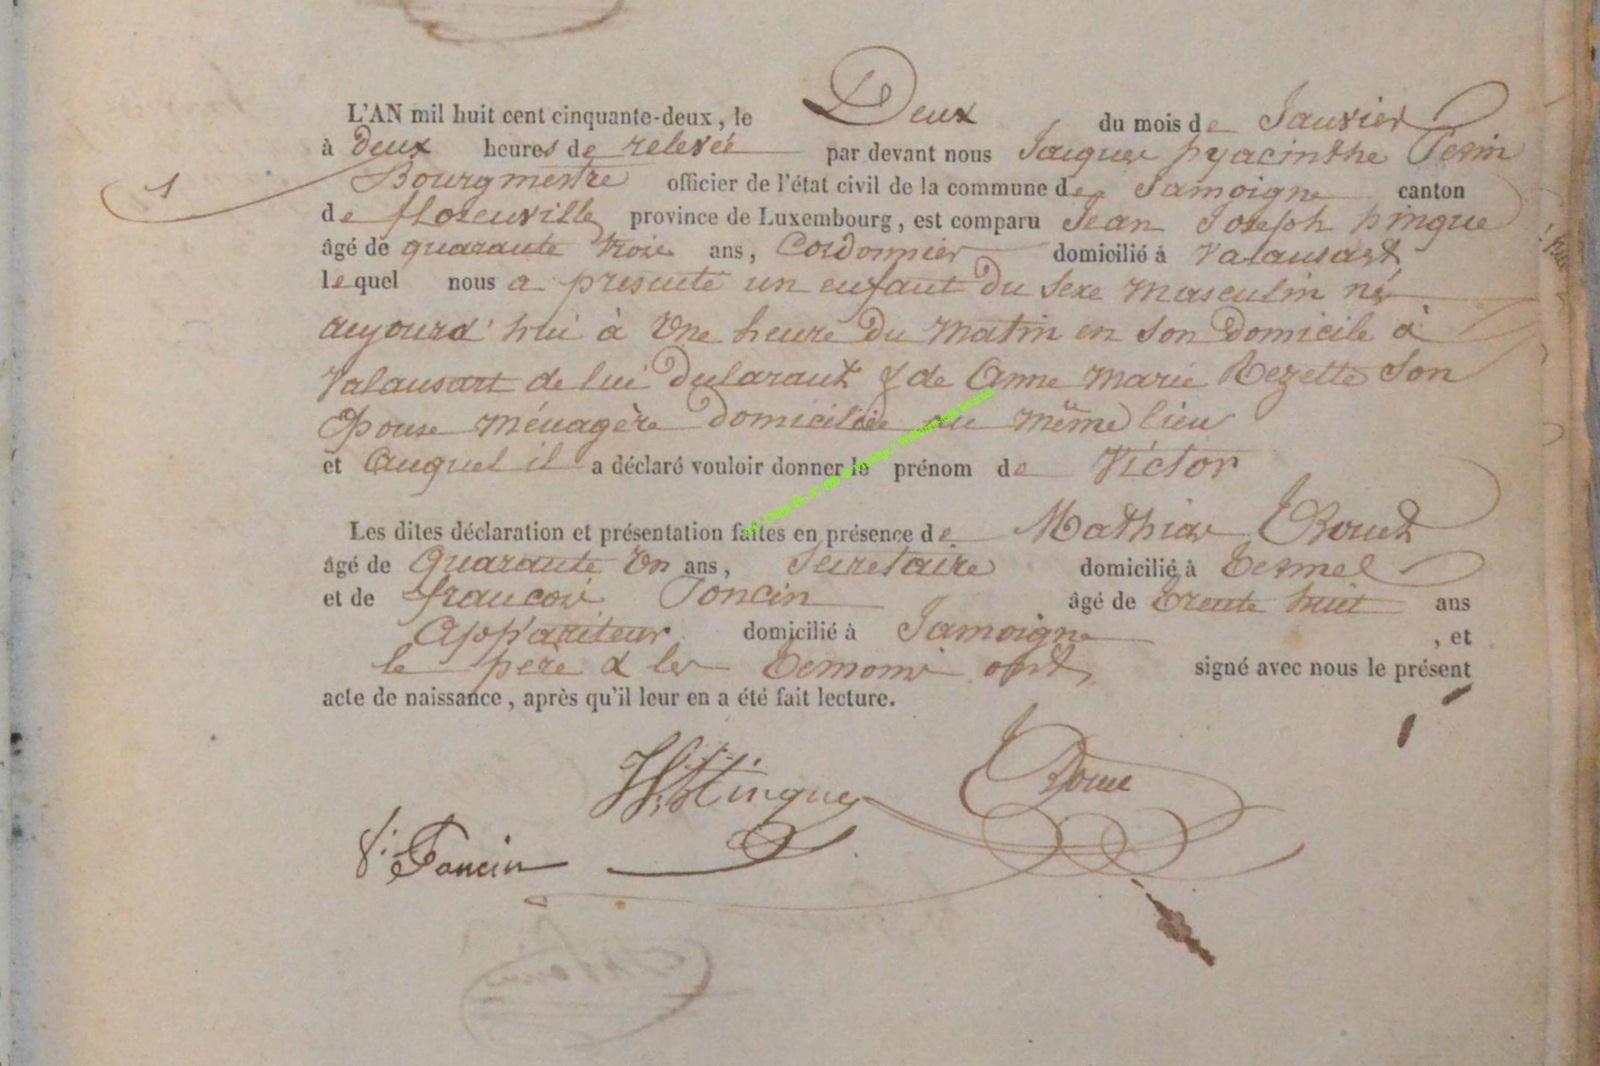 L'AN mil huit cent cinquante-deux, le Deux du mois de Janvier
à deux heures de relevée par devant nous Jacques hyacinthe Perin
1 Bourgmestre officier de l'état civil de la commune de Jamoigne canton
de florenville province de Luxembourg, est comparu Jean Joseph hingue
âgé de quarante trois ans, Cordonnier domicilié à Valansart
lequel nous a presenté un enfant du sexe masculin né
aujourd'hui à Une heure du matin en son domicile à
Valansart de lui déclarant & de Anne Marie Rezette son
Epouse ménagère domiciliée au même lieu
et Auquel il a déclaré vouloir donner le prénom de Victor
Les dites déclaration et présentation faites en présence de Mathias
âgé de Quarante Un ans, Secretaire domicilié à Termel
et de francois Poncin âgé de trente huit ans
Appariteur domicilié à Jamoigne , et
le père & les temoins ont signé avec nous le présent
acte de naissance, après qu'il leur en a été fait lecture.
hingue
f. Poncin